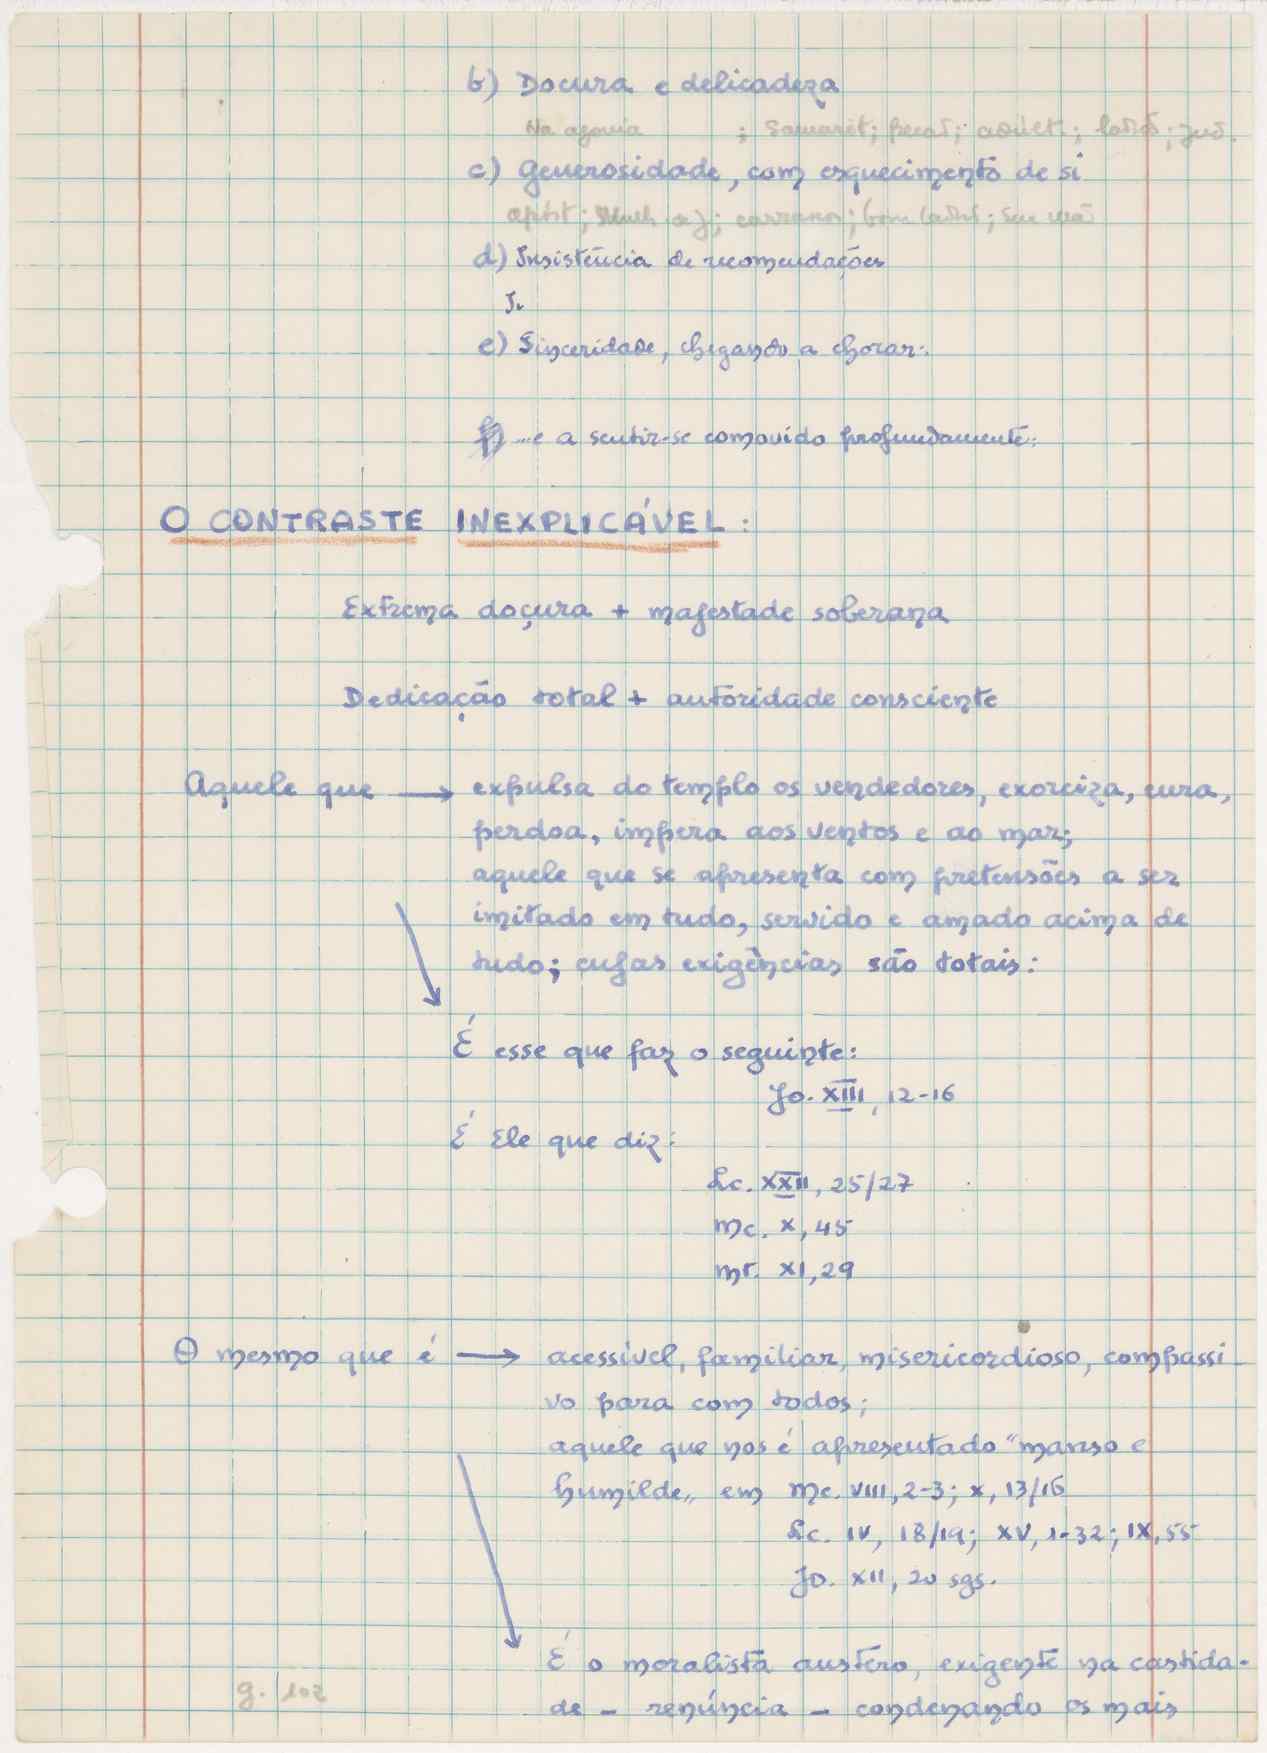 b) Doçura e delicadeza
Na agonia ; Samarit; pecad; adúlt.; ladrã; jud.
c) Generosidade, com esquecimento de si
apóst; carrascos; bom ladrã; sua mã
d) Insistência de recomendações
J.
e) Sinceridade, chegando a chorar:
...e a sentir-se comovido profundamente:
O CONTRASTE INEXPLICÁVEL:
Extrema doçura + majestade soberana
Dedicação total + autoridade consciente
Aquele que → expulsa do templo os vendedores, exorciza, cura,
perdoa, impera aos ventos e ao mar;
aquele que se apresenta com pretensões a ser
imitado em tudo, servido e amado acima de
tudo; cujas exigências são totais:
É esse que faz o seguinte:
Jo. XIII, 12-16
É Ele que diz:
Lc. XXII, 25/27
Mc. X, 45
Mt. XI, 29
O mesmo que é → acessível, familiar, misericordioso, compassi
vo para com todos;
aquele que nos é apresentado "manso e
humilde" em Mc. VIII, 2-3; X, 13/16
Lc. IV, 18/19; XV, 1-32; IX, 55
Jo. XII, 20 sgs.
É o moralista austero, exigente na castida-
de - renúncia - condenando os mais
g. 102